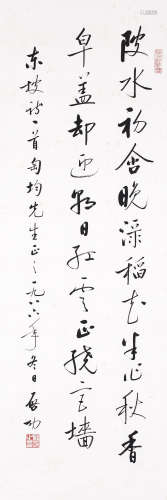 陂水初含晓渌稻花半作秋香
皁盖却迎朝日红云正绕宫墙
东坡诗一首匋均先生正之一九八六年冬日启功